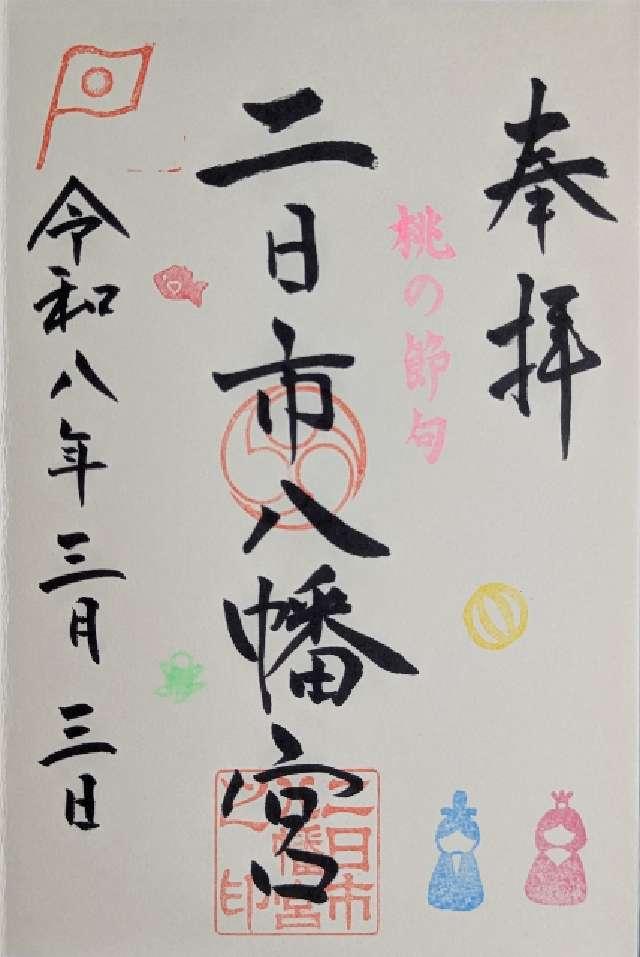 奉拝
桃の節句
二日市八幡宮
二日市八幡宮之印
令和八年三月三日